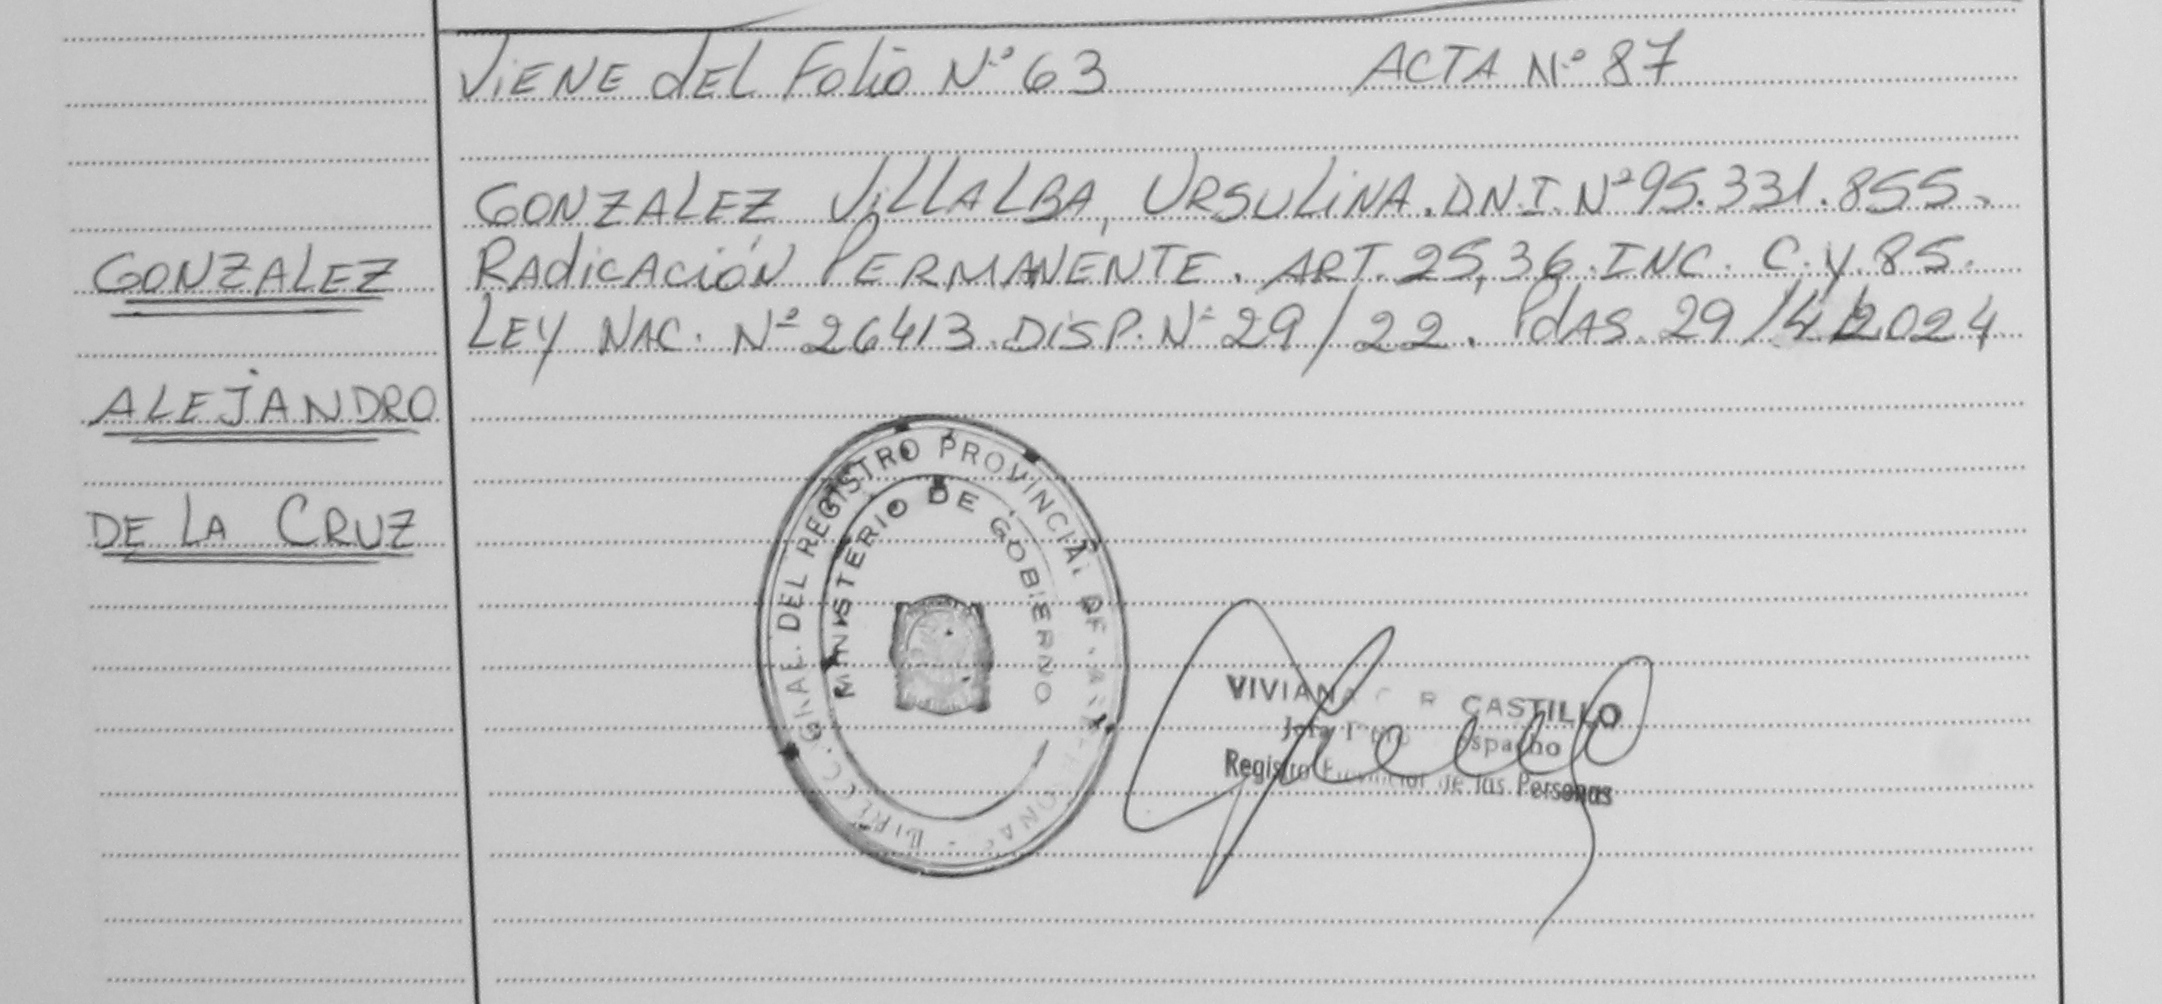 VIENE DEL FOLIO Nº 63 ACTA Nº 87
GONZALEZ VILLALBA, URSULINA. D.N.I. Nº 95.331.855.
RADICACIÓN PERMANENTE. ART. 25, 36. INC. C. y. 85.
LEY NAC. Nº 26413. DISP. Nº 29/22. Pdas. 29/4/2024
GONZALEZ
ALEJANDRO
DE LA CRUZ
DIRECC. GRAL. DEL REGISTRO PROVINCIAL DE
MINISTERIO DE GOBIERNO
VIVIANA CASTILLO
Registro de las Personas